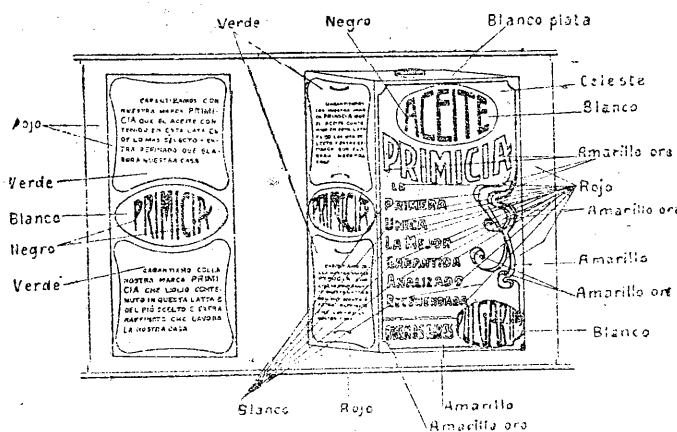 Verde
Negro
Blanco plata
Celeste
Blanco
Amarillo oro
Rojo
Amarillo oro
Amarillo
Amarillo oro
Blanco
Rojo
Verde
Blanco
Negro
Verde
GARANTIZAMOS CON
NUESTRA MARCA PRIMI-
CIA QUE EL ACEITE CON-
TENIDO EN ESTA LATA ES
DE LO MAS SELECTO Y EX-
TRA REFINADO QUE ELA-
BORA NUESTRA CASA
PRIMICIA
GARANTIAMO COLLA
NOSTRA MARCA PRIMI-
CIA CHE L'OLIO CONTE-
NUTO IN QUESTA LATTA E
DEL PIÚ SCELTO E EXTRA
RAFFINATO CHE LAVORA
LA NOSTRA CASA
PRIMICIA
ACEITE
PRIMICIA
LA
PRIMERA
UNICA
LA MEJOR
GARANTIDA
ANALIZADO
RECOMENDADA
Blanco
Rojo
Amarillo
Amarillo oro